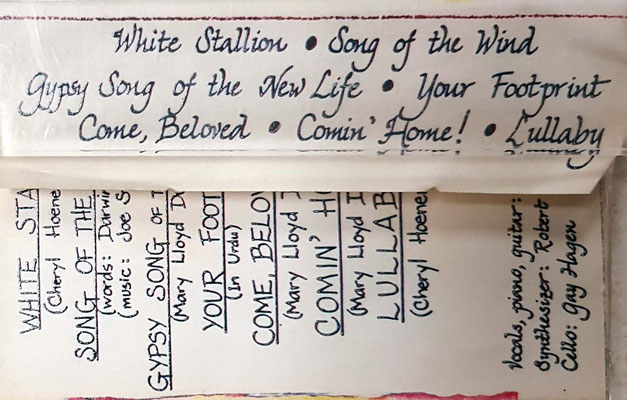 White Stallion • Song of the Wind
Gypsy Song of the New Life • Your Footprint
Come, Beloved • Comin' Home! • Lullaby
WHITE STA
(Cheryl Hoene
SONG OF THE
(words: Darwin
(music: Joe S
GYPSY SONG OF T
(Mary Lloyd D
YOUR FOOT
(In Urdu)
COME, BELOV
(Mary Lloyd
COMIN' HO
(Mary Lloyd
LULLAB
(Cheryl Hoene
Vocals, piano, guitar:
Synthesizer: Robert
Cello: Gay Hagen